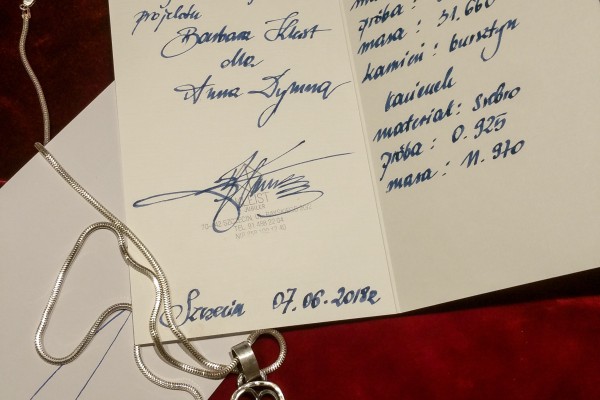 projektu
Barbara Kleist
dla
Anna Dymna
KLEIST
JUBILER
Szczecin 07.06.2018r
próba :
masa : 31.660
kamień : bursztyn
łańcuch
materiał : srebro
próba : 0.925
masa : 11.970